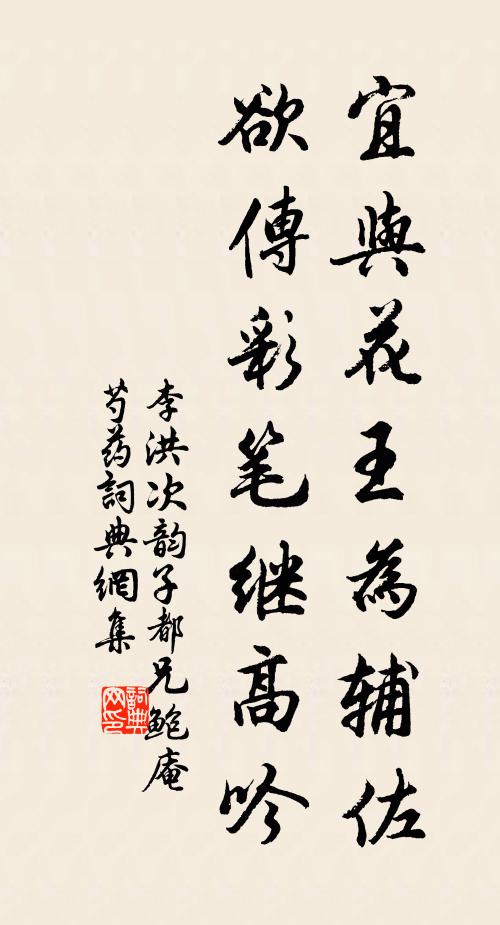 宜與花王為辅佐
欲傳彩笔继高吟
李洪次韵子都兄鲍庵
芍药詞典網集
詞典網印